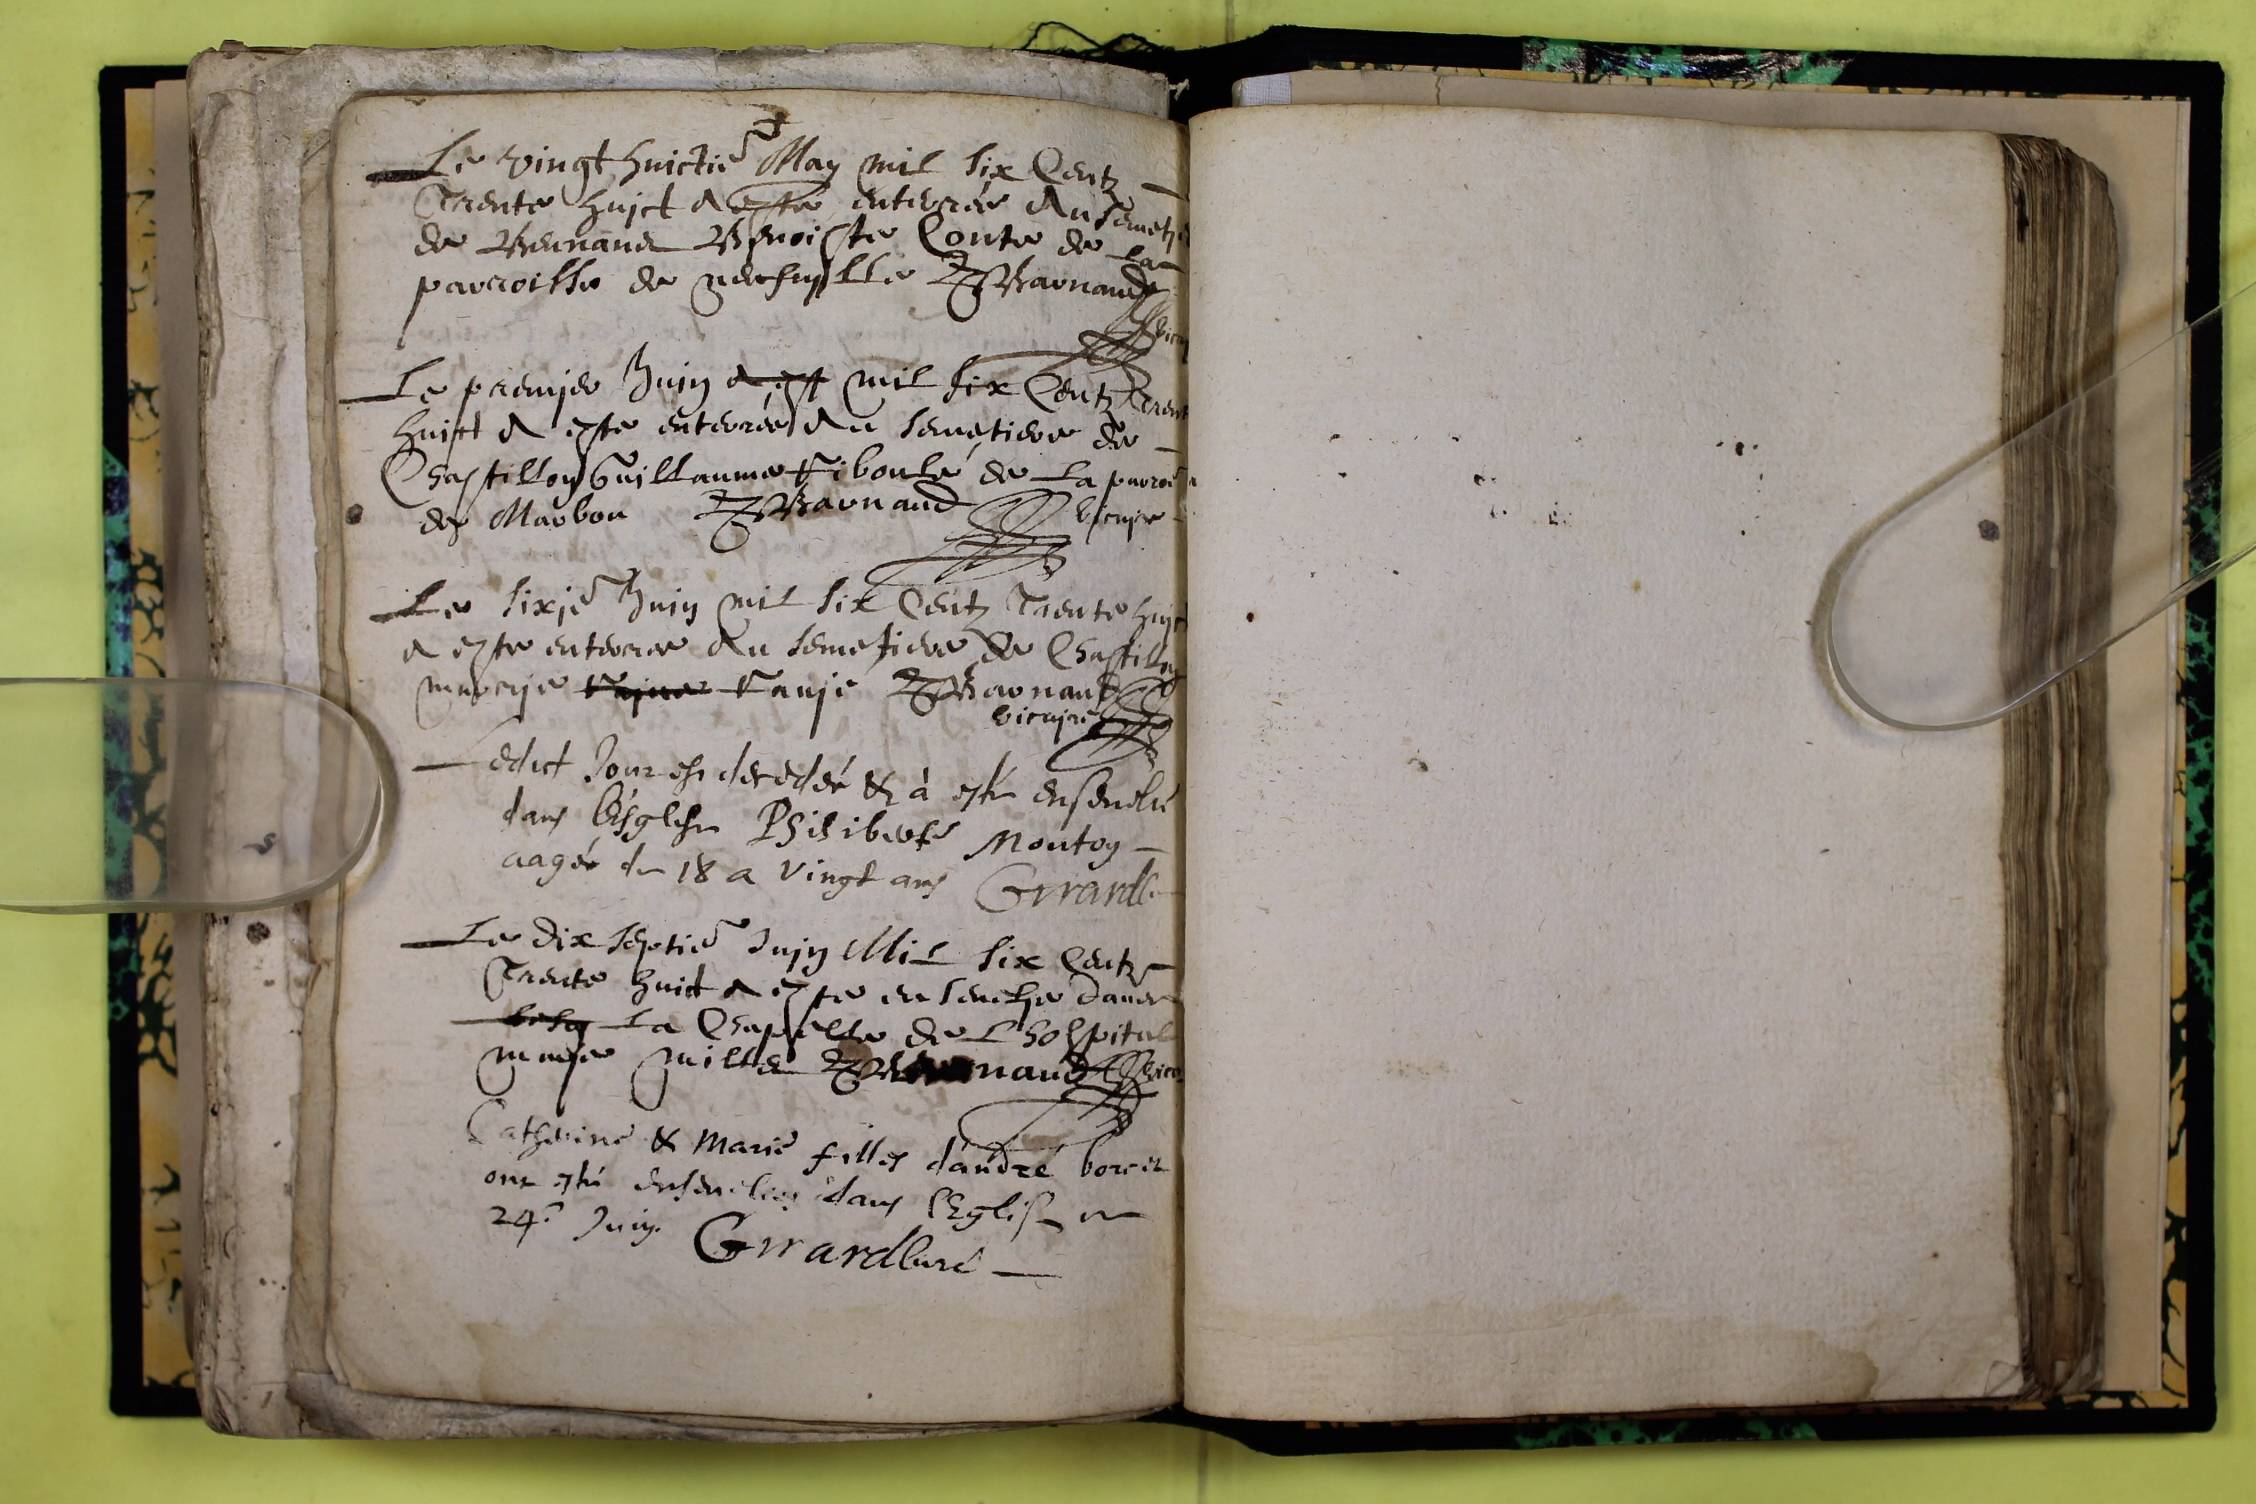 Le vingt huictie May mil six Centz
Trente huict A este enterrée Au semetie
de Benoiste Conte de La
parroisse de Barnaud
vicai
Le premier Juin a est mil six Centz trent
huict A este enterrée Au semetiere de
Chastillon Guillauma Tiboulé de La parroi
de Marbou Barnaud vicaire
Le sixie Juin mil six Centz Trente huict
A este enterree Au semetiere de Chastillon
marije Tanje Barnaud
vicaire
Ledict Jour est decedée & à esté ensevelie
dans l'esglise Philiberte Monton
aagée de 18 a vingt ans Girard
Le dix septie Juin Mil six Centz
Trente huict A este ensevelye dans
La Chapelle de L'hospital
Barnaud vicai
Catherine & Marie filles d'andré
ont esté ensevelies dans l'Eglise le
24e Juin. Girard curé